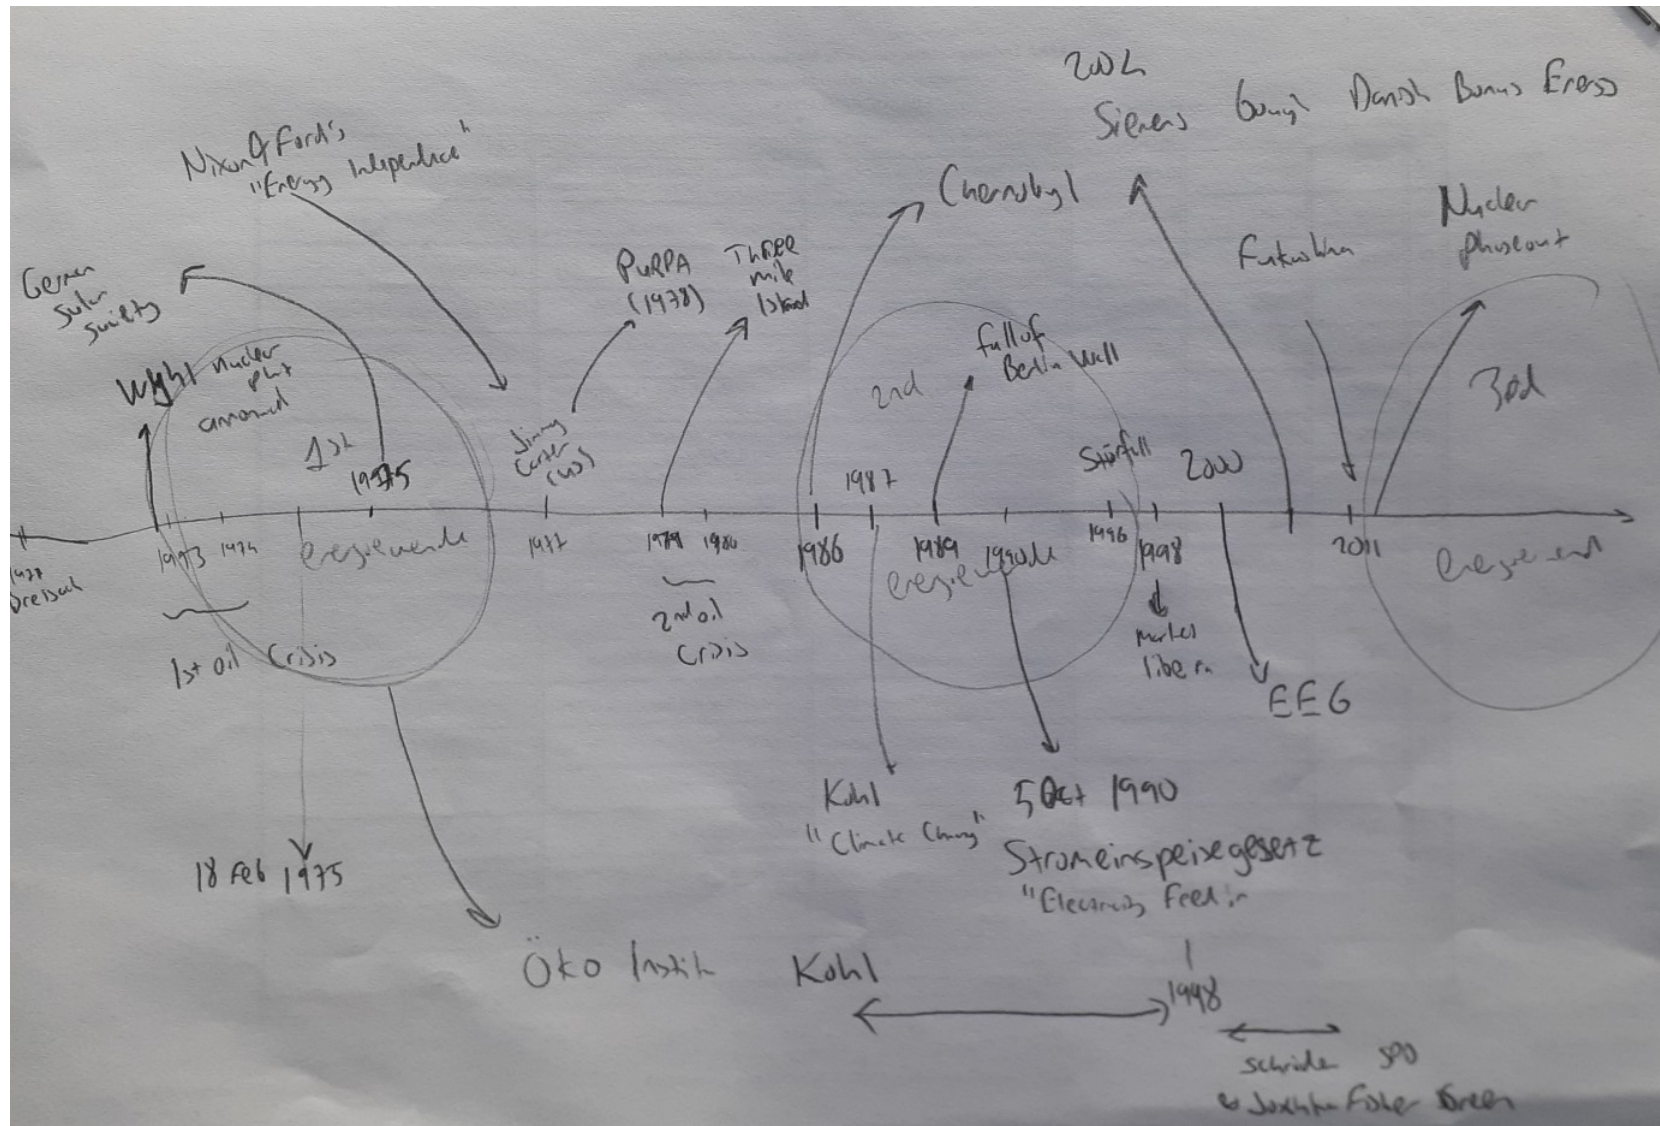 2004
Siemens Danish Bonus Energy
Nixon & Ford's
"Energy Independence"
Chernobyl
Nuclear
phaseout
German
Solar
Society
PURPA
(1978)
Three
mile
Island
Fukushima
nuclear
plant
announced
fall of
Berlin Wall
2nd
3rd
1st
1975
Jimmy
Carter
(US)
1987
Störfall
2000
1973
1974
energiewende
1977
1979
1980
1986
1989
1990
energiewende
1996
1998
2011
energiewende
1st oil Crisis
2nd oil
Crisis
market
libera
EEG
Kohl
"Climate Change"
5 Oct 1990
Stromeinspeisegesetz
"Electricity Feed in
18 Feb 1975
Öko Instit
Kohl
1998
SPD
Fisher Green